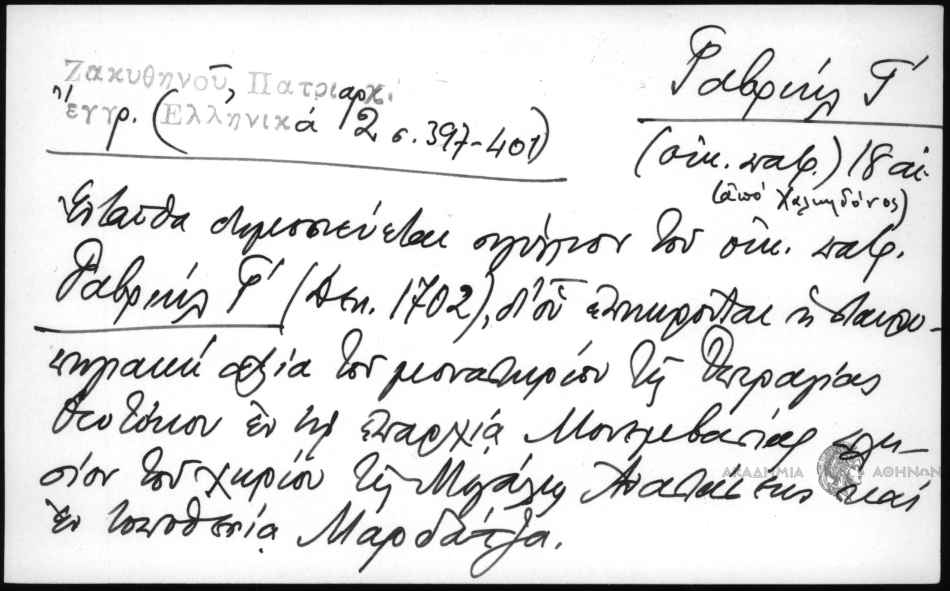 Ζακυθηνοῦ, Πατριαρχ.
ἔγγρ. (Ἑλληνικά 2 σ. 397-401)
Γαβριήλ Γ΄
(οἰκ. πατρ.) 18 αἰ.
(ἀπό Χαλκηδόνος)
Ἐνταῦθα δημοσιεύεται σιγίλλιον τοῦ οἰκ. πατρ.
Γαβριήλ Γ΄ (Δεκ. 1702), δι' οὗ ἐπικυροῦται ἡ σταυρο-
πηγιακή ἀξία τοῦ μοναστηρίου τῆς Ὑπεραγίας
Θεοτόκου ἐν τῇ ἐπαρχίᾳ Μονεμβασίας πλη-
σίον τοῦ χωρίου τῆς Μεγάλης καί
ἐν τοποθεσίᾳ Μαρδάτζα.
ΑΚΑΔΗΜΙΑ ΑΘΗΝΩΝ